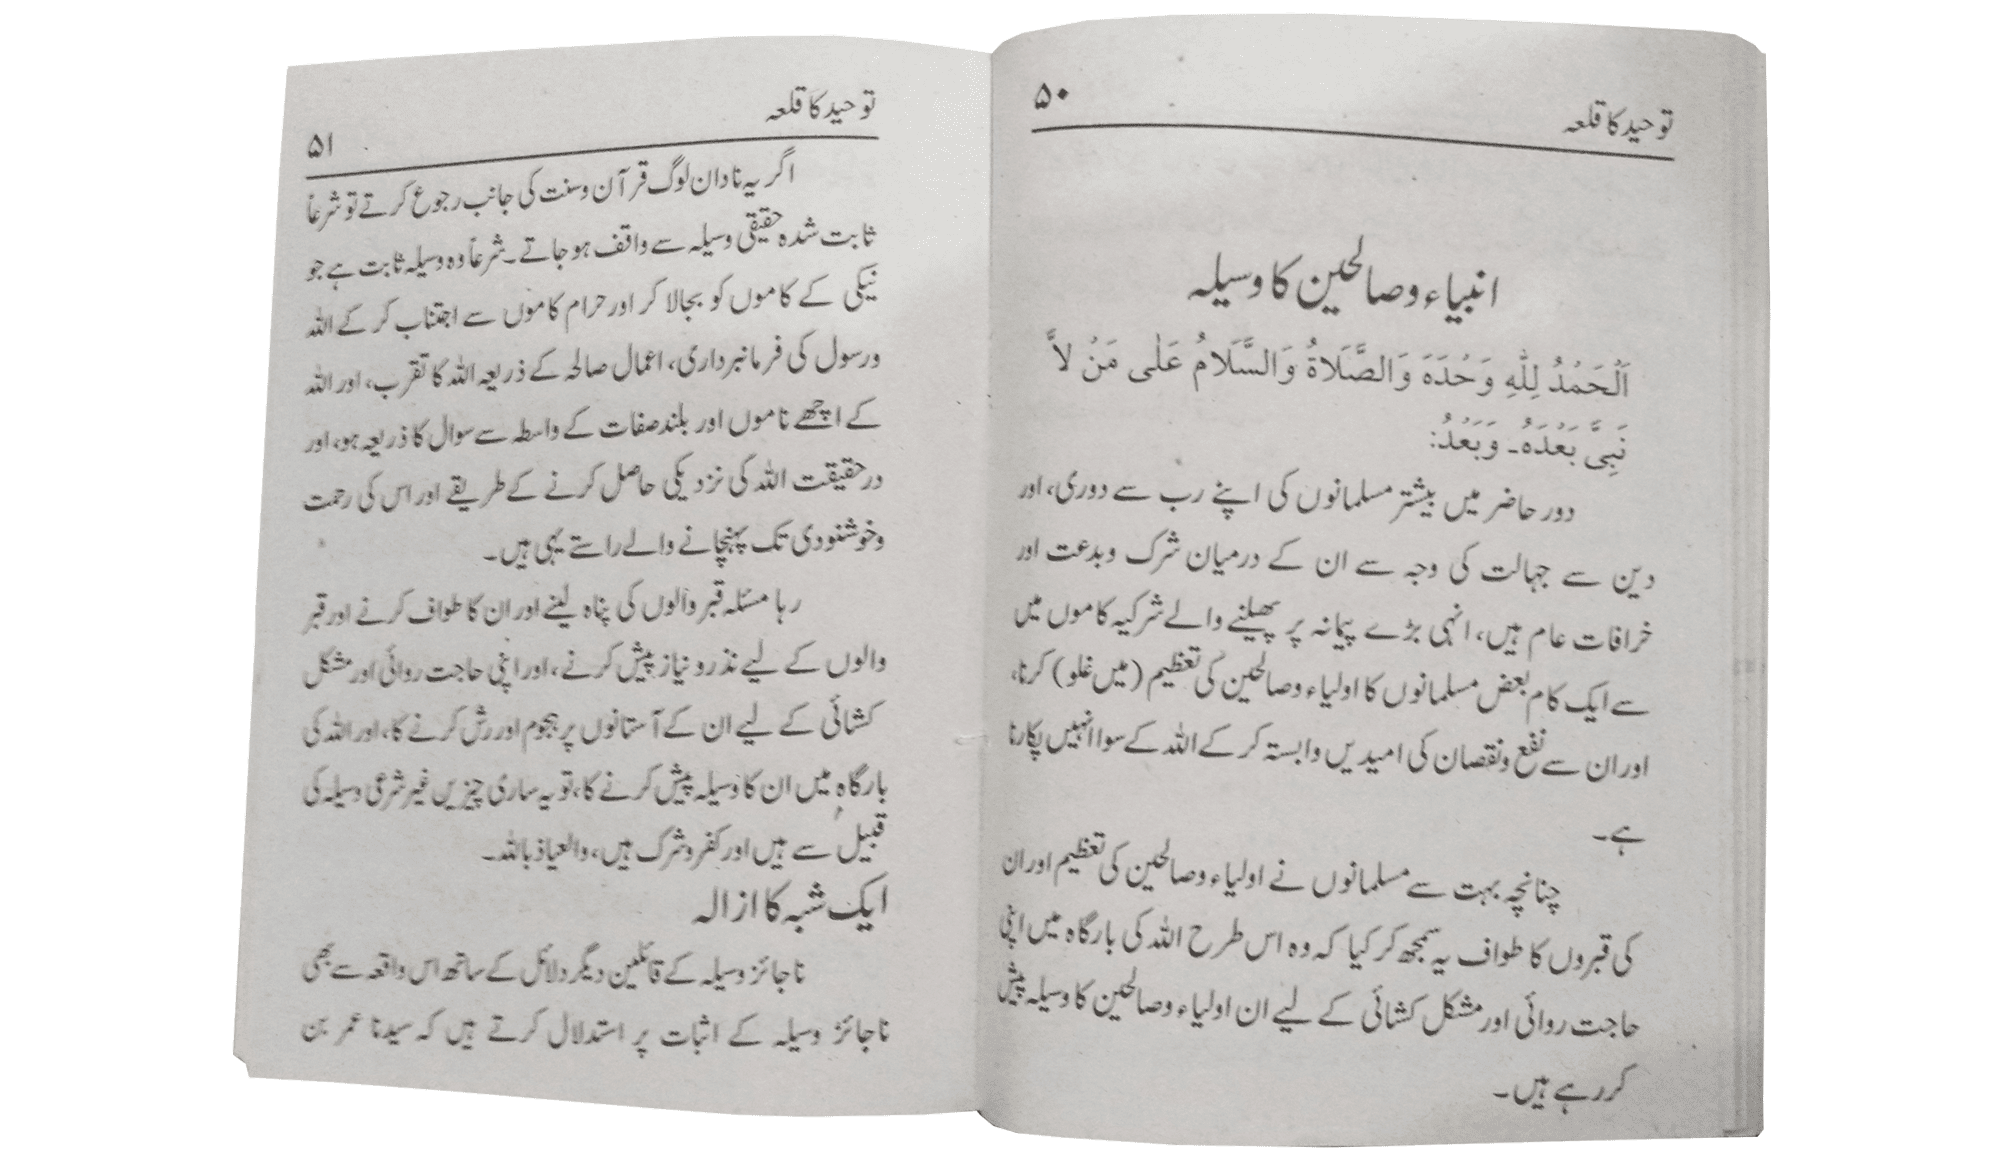 توحید کا قلعہ
۵۰
انبیاء وصالحین کا وسیلہ
اَلْحَمْدُ لِلّٰہِ وَحْدَہَ وَالصَّلَاۃُ وَالسَّلَامُ عَلٰی مَنْ لاَّ
نَبِیَّ بَعْدَہُ۔ وَبَعْدُ:
دور حاضر میں بیشتر مسلمانوں کی اپنے رب سے دوری، اور
دین سے جہالت کی وجہ سے ان کے درمیان شرک وبدعت اور
خرافات عام ہیں، انہی بڑے پیمانہ پر پھیلنے والے شرکیہ کاموں میں
سے ایک کام بعض مسلمانوں کا اولیاء وصالحین کی تعظیم (میں غلو) کرنا،
اور ان سے نفع ونقصان کی امیدیں وابستہ کر کے اللہ کے سوا انہیں پکارنا
ہے۔
چنانچہ بہت سے مسلمانوں نے اولیاء وصالحین کی تعظیم اور ان
کی قبروں کا طواف یہ سمجھ کر کیا کہ وہ اس طرح اللہ کی بارگاہ میں اپنی
حاجت روائی اور مشکل کشائی کے لیے ان اولیاء وصالحین کا وسیلہ پیش
کر رہے ہیں۔
توحید کا قلعہ
۵۱
اگر یہ نادان لوگ قرآن وسنت کی جانب رجوع کرتے تو شرعاً
ثابت شدہ حقیقی وسیلہ سے واقف ہو جاتے۔ شرعاً وہ وسیلہ ثابت ہے جو
نیکی کے کاموں کو بجالا کر اور حرام کاموں سے اجتناب کر کے اللہ
ورسول کی فرمانبرداری، اعمال صالحہ کے ذریعہ اللہ کا تقرب، اور اللہ
کے اچھے ناموں اور بلند صفات کے واسطہ سے سوال کا ذریعہ ہو، اور
درحقیقت اللہ کی نزدیکی حاصل کرنے کے طریقے اور اس کی رحمت
وخوشنودی تک پہنچانے والے راستے یہی ہیں۔
رہا مسئلہ قبر والوں کی پناہ لینے اور ان کا طواف کرنے اور قبر
والوں کے لیے نذر ونیاز پیش کرنے، اور اپنی حاجت روائی اور مشکل
کشائی کے لیے ان کے آستانوں پر ہجوم اور رش کرنے کا، اور اللہ کی
بارگاہ میں ان کا وسیلہ پیش کرنے کا، تو یہ ساری چیزیں غیر شرعی وسیلہ کی
قبیل سے ہیں اور کفر وشرک ہیں، والعیاذ باللہ۔
ایک شبہ کا ازالہ
ناجائز وسیلہ کے قائلین دیگر دلائل کے ساتھ اس واقعہ سے بھی
ناجائز وسیلہ کے اثبات پر استدلال کرتے ہیں کہ سیدنا عمر بن